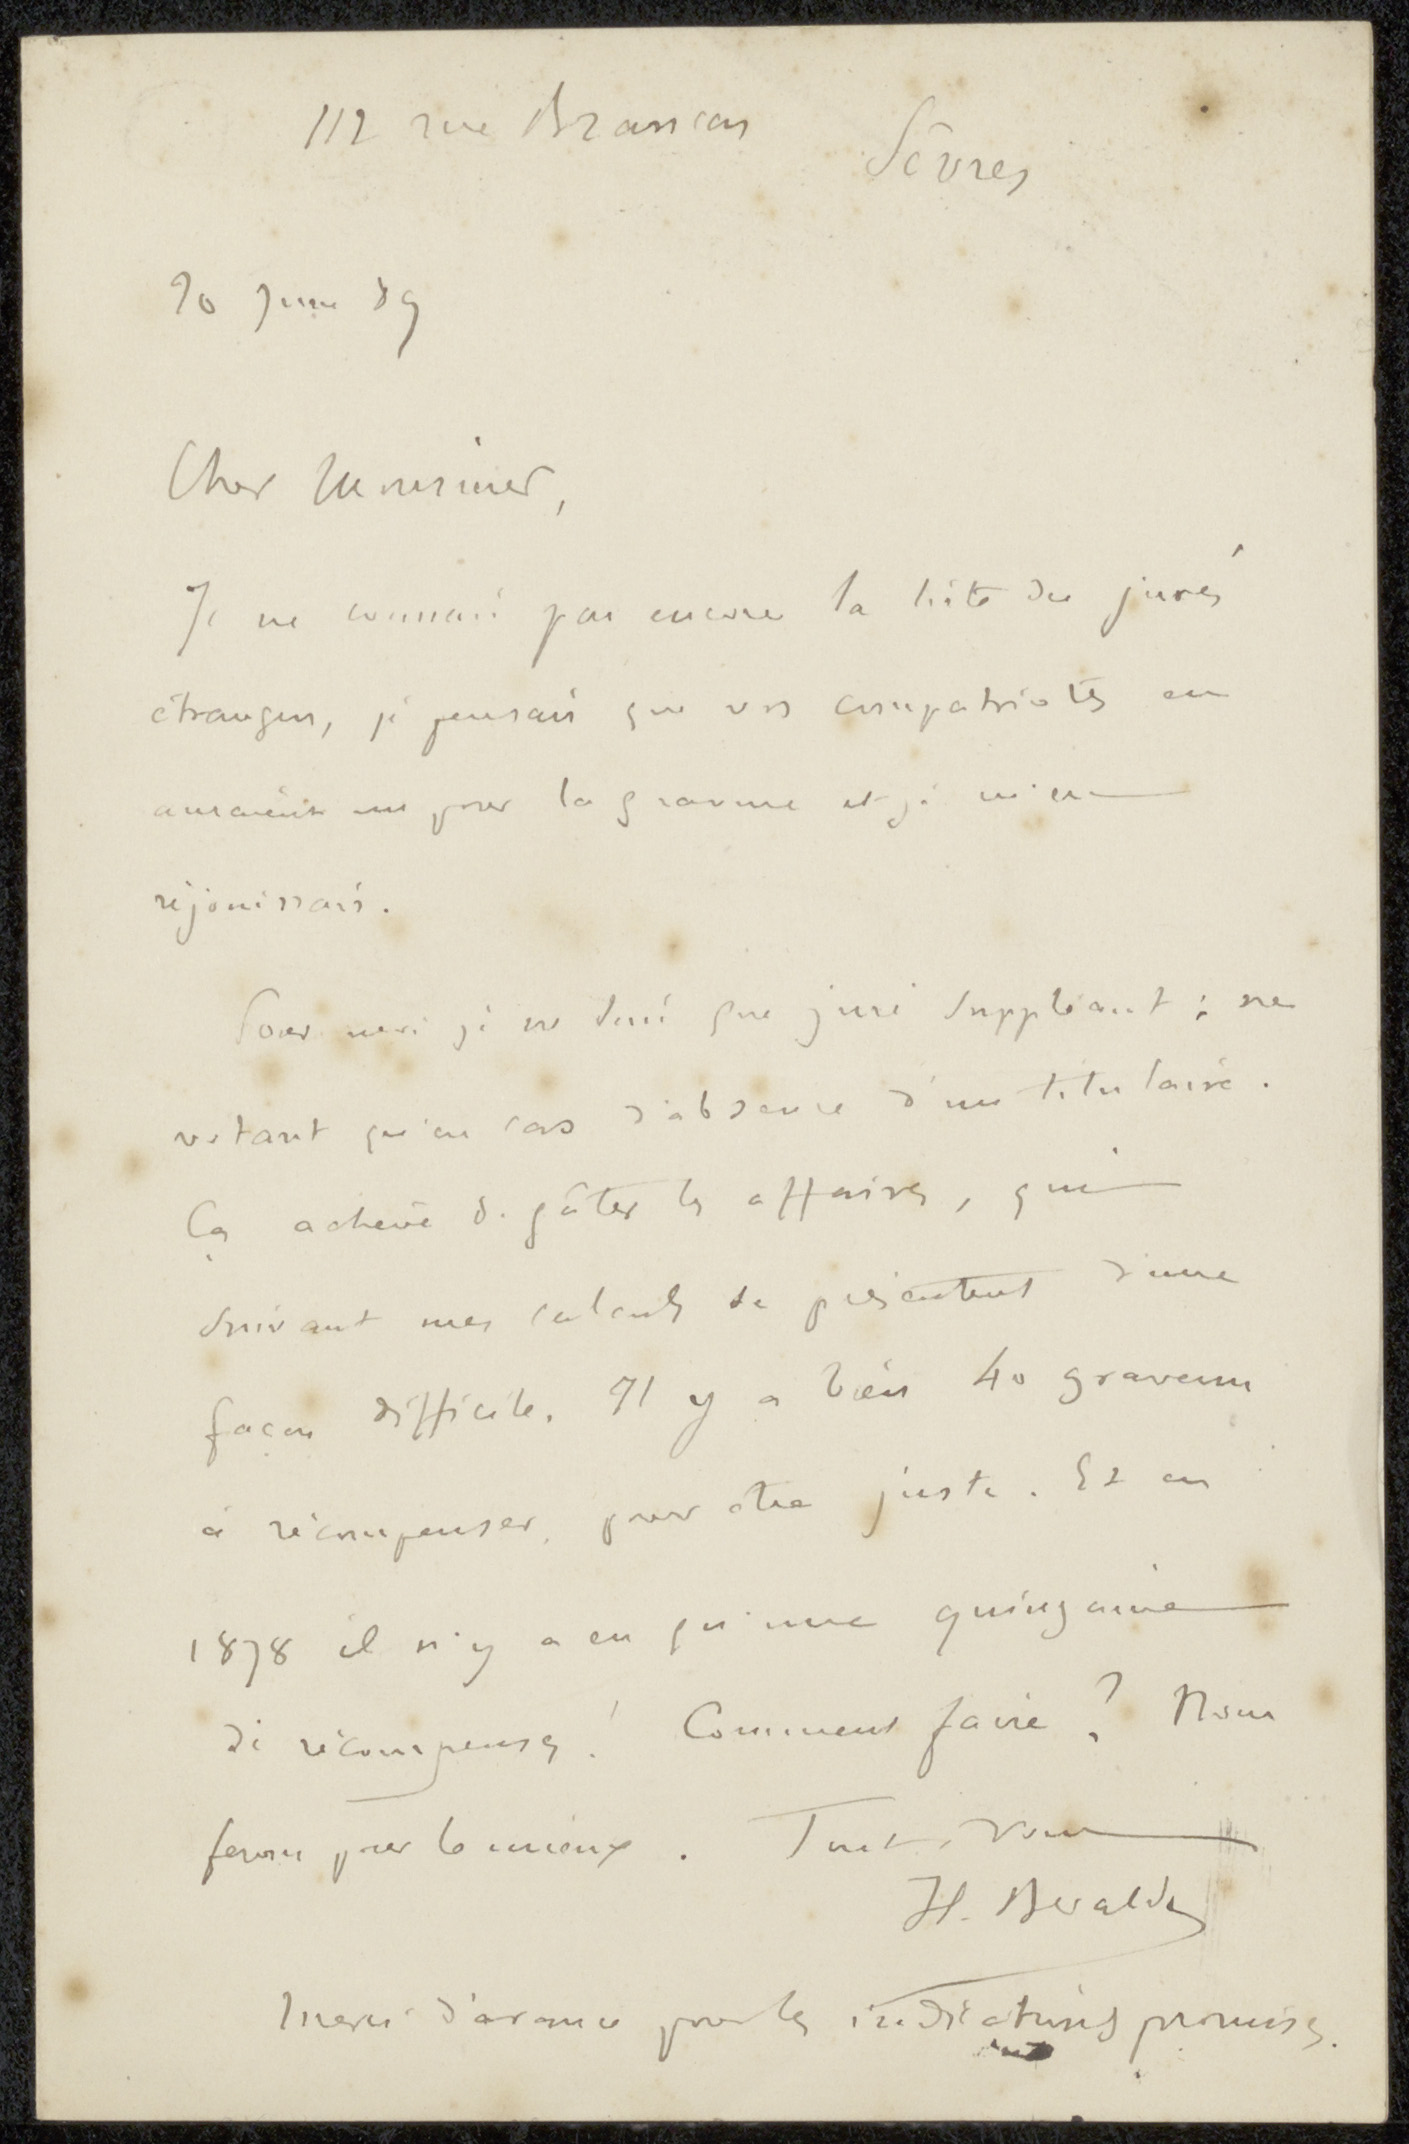 112 rue Brancas
Sèvres
Juin 89
Cher Monsieur,
Je ne connais pas encore la liste des jurés
étrangers, je pensais que vos compatriotes en
auraient un pour la gravure et je m'en
réjouissais.
Pour moi je ne suis que juré suppléant ; ne
votant qu'en cas d'absence d'un titulaire.
Ça achève de gâter les affaires, qui
suivant mes calculs se présentent d'une
façon difficile. Il y a bien 40 graveurs
à récompenser, pour être juste. Et en
1878 il n'y a eu qu'une quinzaine
de récompenses ! Comment faire ? Nous
ferons pour le mieux. Tout à vous
H. Beraldi
Merci d'avance pour les indications promises.